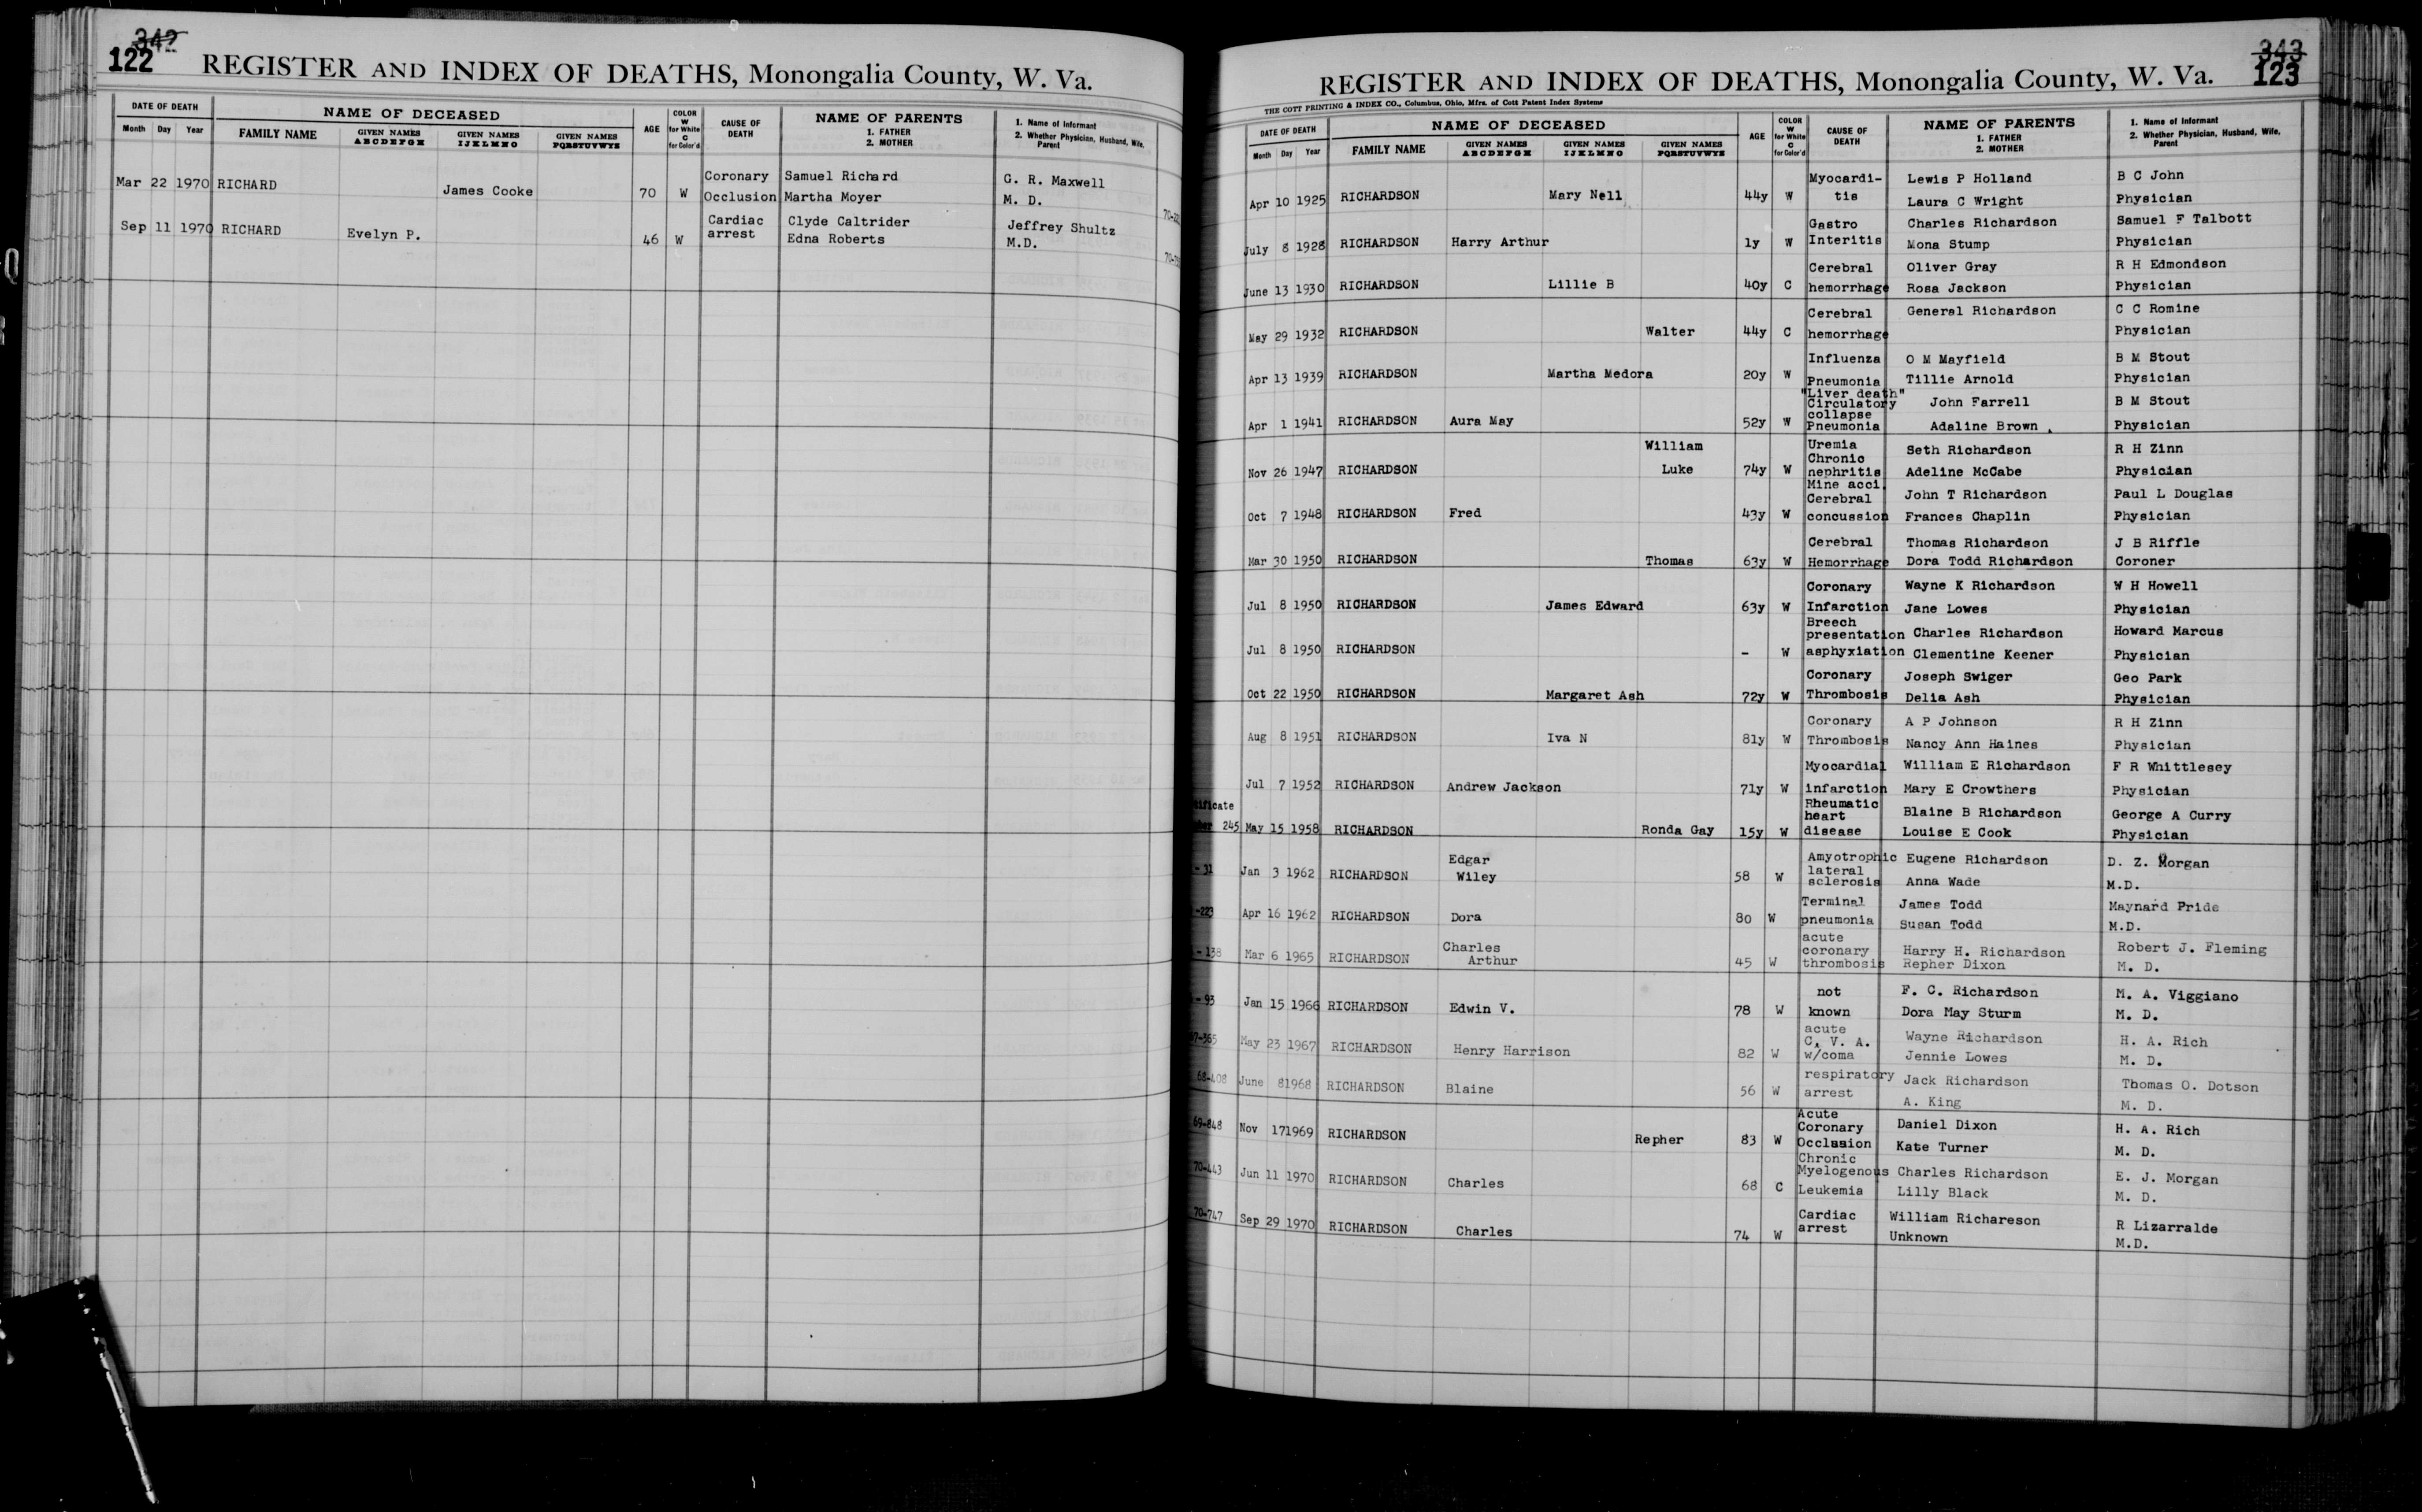 342
122
REGISTER AND INDEX OF DEATHS, Monongalia County, W. Va.
DATE OF DEATH NAME OF DECEASED AGE COLOR W for White C for Color'd CAUSE OF DEATH NAME OF PARENTS 1. FATHER 2. MOTHER 1. Name of Informant 2. Whether Physician, Husband, Wife, Parent
Month Day Year FAMILY NAME GIVEN NAMES ABCDEFGH GIVEN NAMES IJKLMNO GIVEN NAMES PQRSTUVWYZ
Mar 22 1970 RICHARD James Cooke 70 W Coronary Samuel Richard G. R. Maxwell
Occlusion Martha Moyer M. D.
Sep 11 1970 RICHARD Evelyn P. 46 W Cardiac Clyde Caltrider Jeffrey Shultz
arrest Edna Roberts M.D.
343
123
REGISTER AND INDEX OF DEATHS, Monongalia County, W. Va.
THE COTT PRINTING & INDEX CO., Columbus, Ohio, Mfrs. of Cott Patent Index Systems
DATE OF DEATH NAME OF DECEASED AGE COLOR W for White C for Color'd CAUSE OF DEATH NAME OF PARENTS 1. FATHER 2. MOTHER 1. Name of Informant 2. Whether Physician, Husband, Wife, Parent
Month Day Year FAMILY NAME GIVEN NAMES ABCDEFGH GIVEN NAMES IJKLMNO GIVEN NAMES PQRSTUVWYZ
Myocardi- Lewis P Holland B C John
Apr 10 1925 RICHARDSON Mary Nell 44y W tis Laura C Wright Physician
Gastro Charles Richardson Samuel F Talbott
July 8 1928 RICHARDSON Harry Arthur 1y W Interitis Mona Stump Physician
Cerebral Oliver Gray R H Edmondson
June 13 1930 RICHARDSON Lillie B 40y C hemorrhage Rosa Jackson Physician
Cerebral General Richardson C C Romine
May 29 1932 RICHARDSON Walter 44y C hemorrhage Physician
Influenza O M Mayfield B M Stout
Apr 13 1939 RICHARDSON Martha Medora 20y W Pneumonia Tillie Arnold Physician
"Liver death"
Circulatory John Farrell B M Stout
collapse
Apr 1 1941 RICHARDSON Aura May 52y W Pneumonia Adaline Brown Physician
William Uremia Seth Richardson R H Zinn
Chronic
Nov 26 1947 RICHARDSON Luke 74y W nephritis Adeline McCabe Physician
Mine acci.
Cerebral John T Richardson Paul L Douglas
Oct 7 1948 RICHARDSON Fred 43y W concussion Frances Chaplin Physician
Cerebral Thomas Richardson J B Riffle
Mar 30 1950 RICHARDSON Thomas 63y W Hemorrhage Dora Todd Richardson Coroner
Coronary Wayne K Richardson W H Howell
Jul 8 1950 RICHARDSON James Edward 63y W Infarction Jane Lowes Physician
Breech
presentation Charles Richardson Howard Marcus
Jul 8 1950 RICHARDSON - W asphyxiation Clementine Keener Physician
Coronary Joseph Swiger Geo Park
Oct 22 1950 RICHARDSON Margaret Ash 72y W Thrombosis Delia Ash Physician
Coronary A P Johnson R H Zinn
Aug 8 1951 RICHARDSON Iva N 81y W Thrombosis Nancy Ann Haines Physician
Myocardial William E Richardson F R Whittlesey
Jul 7 1952 RICHARDSON Andrew Jackson 71y W infarction Mary E Crowthers Physician
Rheumatic
heart Blaine B Richardson George A Curry
245 May 15 1958 RICHARDSON Ronda Gay 15y W disease Louise E Cook Physician
Edgar Amyotrophic Eugene Richardson D. Z. Morgan
lateral
-31 Jan 3 1962 RICHARDSON Wiley 58 W sclerosis Anna Wade M.D.
Terminal James Todd Maynard Pride
-223 Apr 16 1962 RICHARDSON Dora 80 W pneumonia Susan Todd M.D.
acute
Charles coronary Harry H. Richardson Robert J. Fleming
-138 Mar 6 1965 RICHARDSON Arthur 45 W thrombosis Repher Dixon M. D.
not F. C. Richardson M. A. Viggiano
-93 Jan 15 1966 RICHARDSON Edwin V. 78 W known Dora May Sturm M. D.
acute
C. V. A. Wayne Richardson H. A. Rich
67-365 May 23 1967 RICHARDSON Henry Harrison 82 W w/coma Jennie Lowes M. D.
respiratory Jack Richardson Thomas O. Dotson
68-408 June 8 1968 RICHARDSON Blaine 56 W arrest A. King M. D.
Acute
Coronary Daniel Dixon H. A. Rich
69-848 Nov 17 1969 RICHARDSON Repher 83 W Occlusion Kate Turner M. D.
Chronic
Myelogenous Charles Richardson E. J. Morgan
70-443 Jun 11 1970 RICHARDSON Charles 68 C Leukemia Lilly Black M. D.
Cardiac William Richareson R Lizarralde
70-747 Sep 29 1970 RICHARDSON Charles 74 W arrest Unknown M.D.